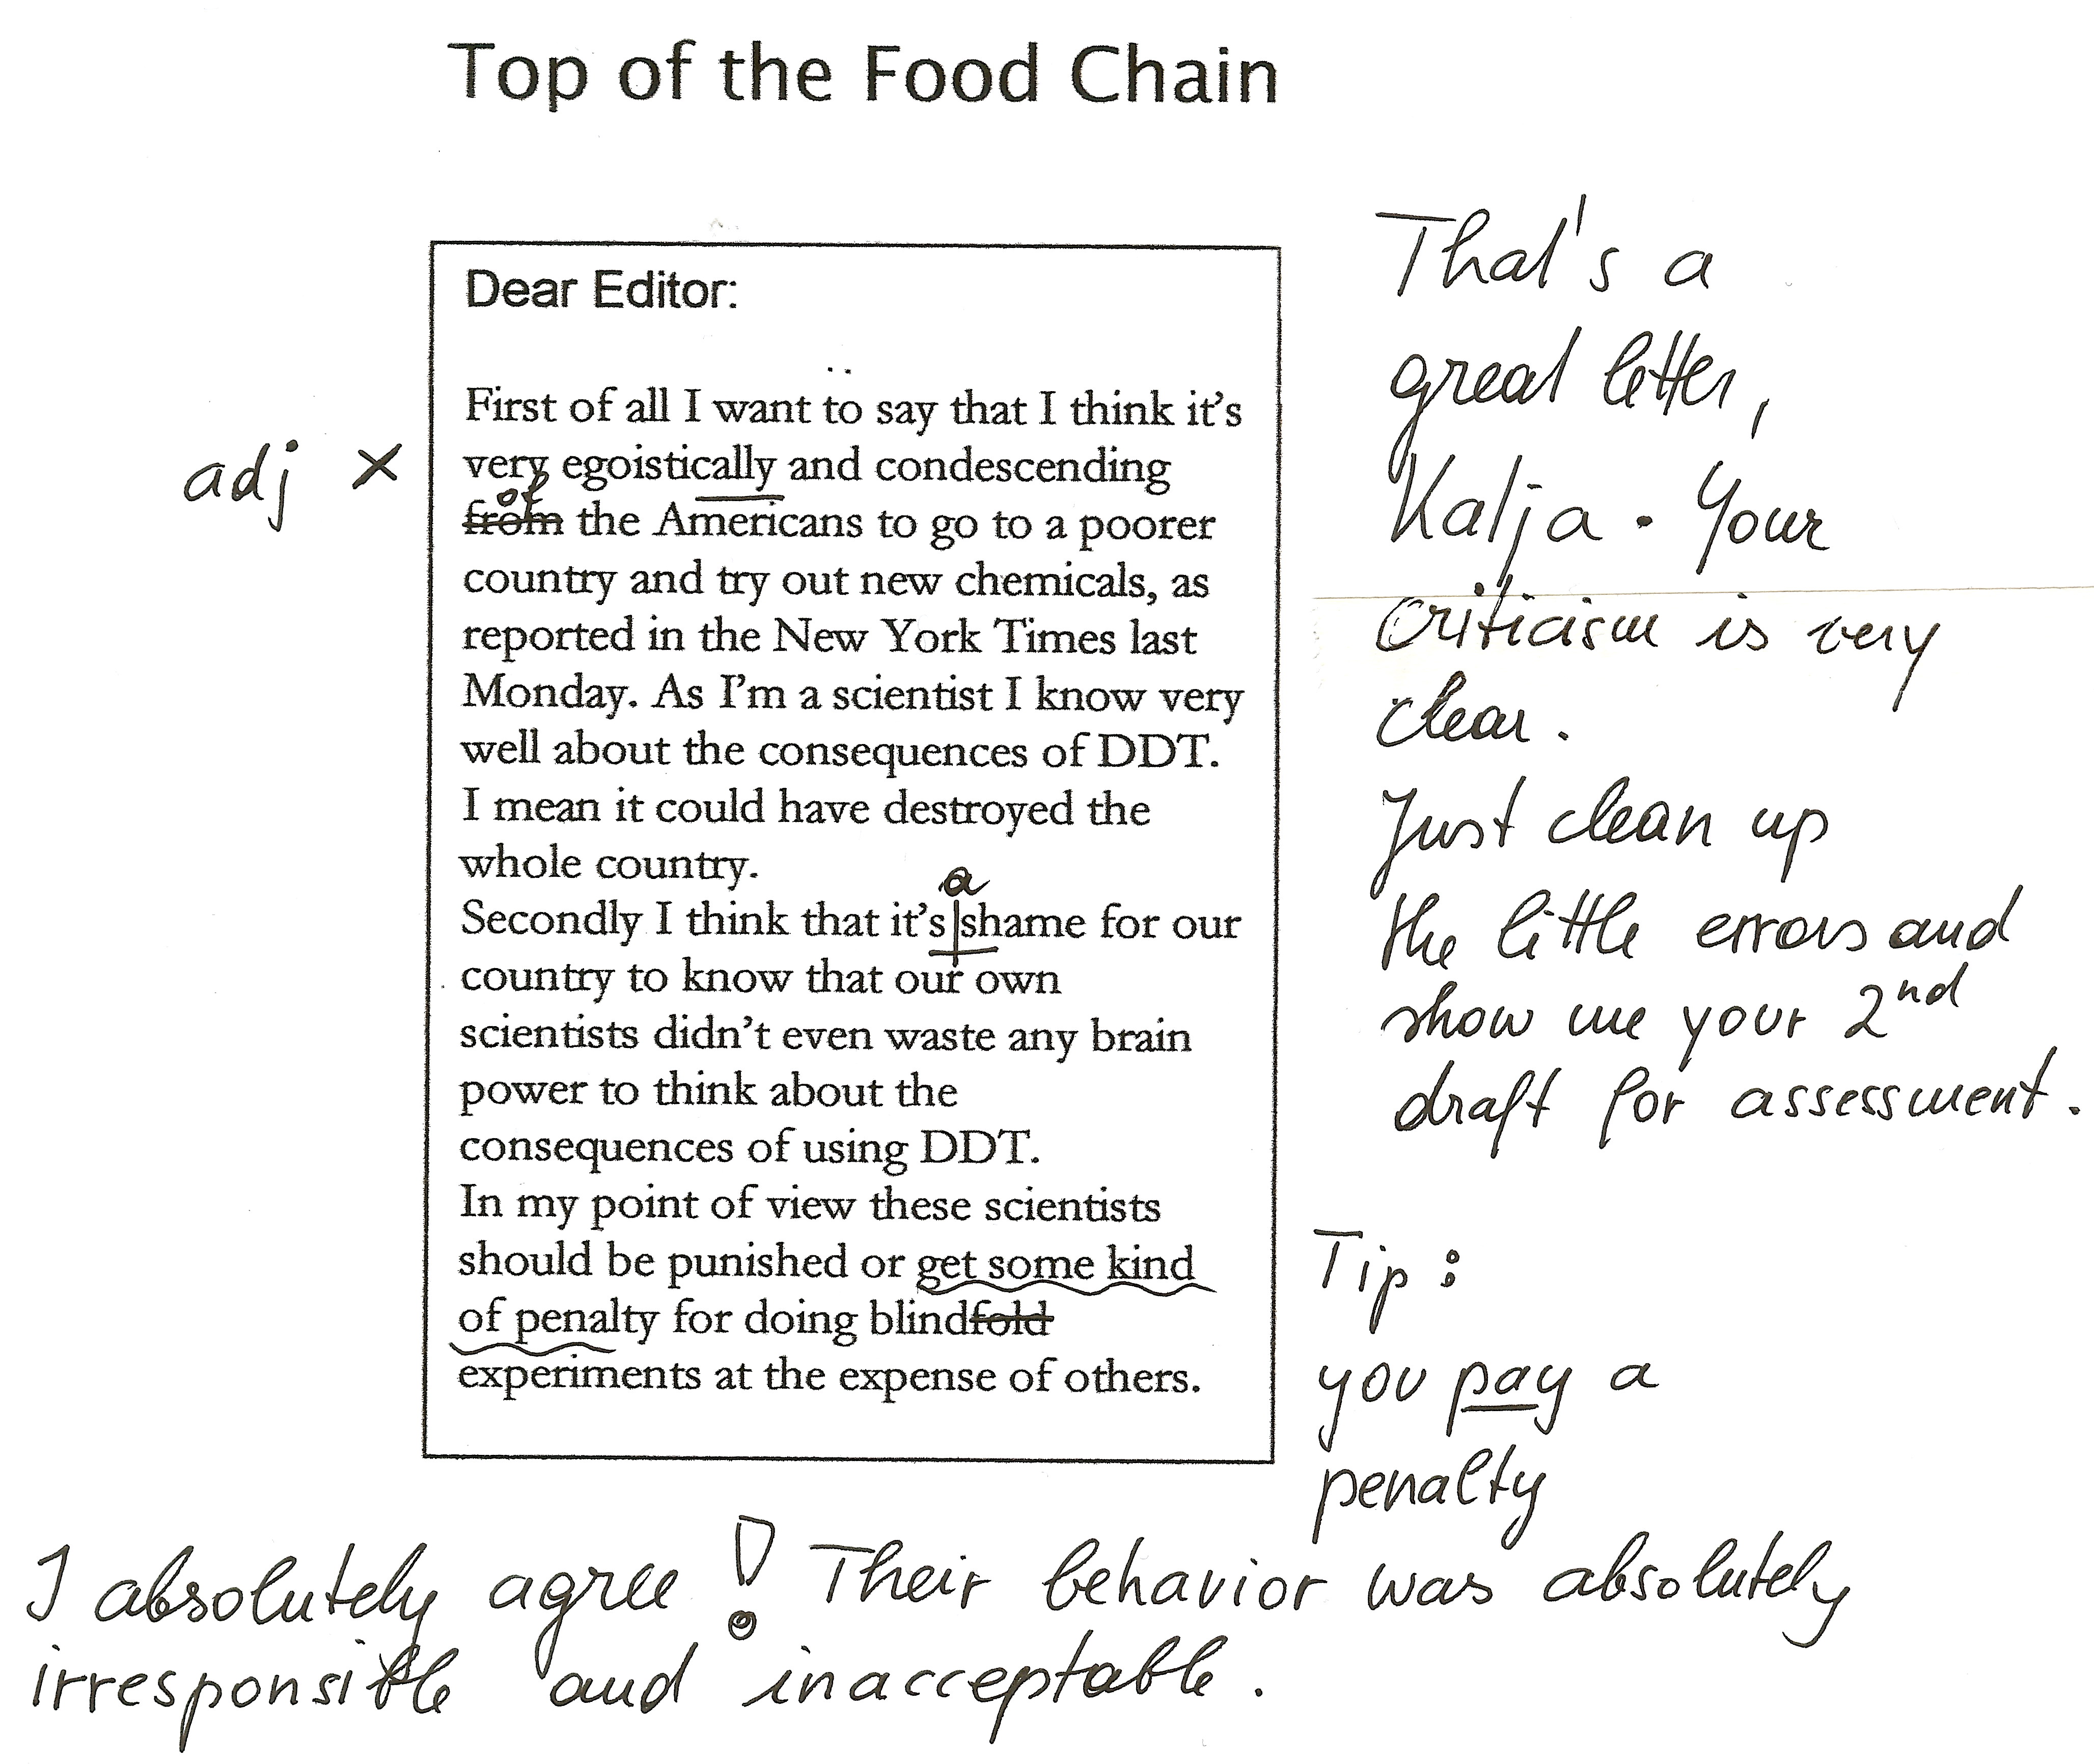 Top of the Food Chain
Dear Editor:
First of all I want to say that I think it's
adj ×
very egoistically and condescending
of
from the Americans to go to a poorer
country and try out new chemicals, as
reported in the New York Times last
Monday. As I'm a scientist I know very
well about the consequences of DDT.
I mean it could have destroyed the
whole country.
a
Secondly I think that it's shame for our
country to know that our own
scientists didn't even waste any brain
power to think about the
consequences of using DDT.
In my point of view these scientists
should be punished or get some kind
of penalty for doing blindfold
experiments at the expense of others.
That's a
great letter,
Katja. Your
criticism is very
clear.
Just clean up
the little errors and
show me your 2nd
draft for assessment.
Tip:
you pay a
penalty
I absolutely agree! Their behavior was absolutely
irresponsible and inacceptable.